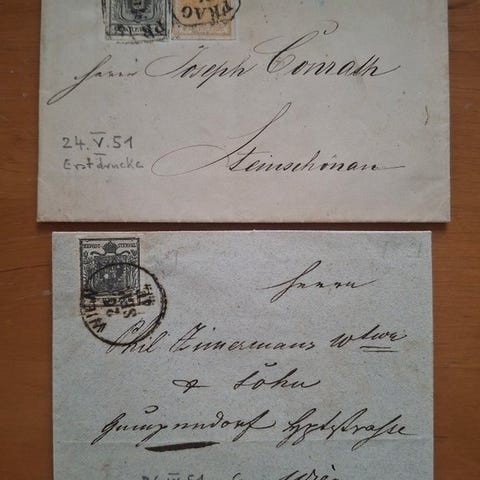 PRAG
PRAG
Herrn Joseph Conrath
24.V.51
Erstdrucke
Steinschönau
WIEN
Herrn
Phil Zimermans wtwe
& Söhn
Gumpendorf Hptstrasse
Wien